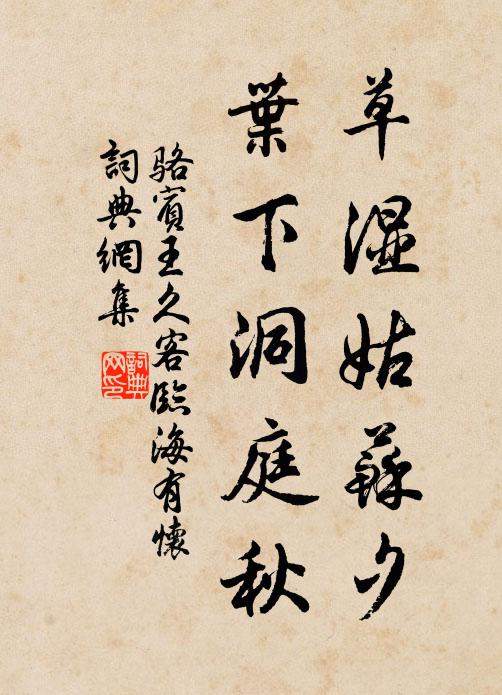 草濕姑蘇夕
葉下洞庭秋
駱賓王久客臨海有懷
詞典網集
詞典
网印